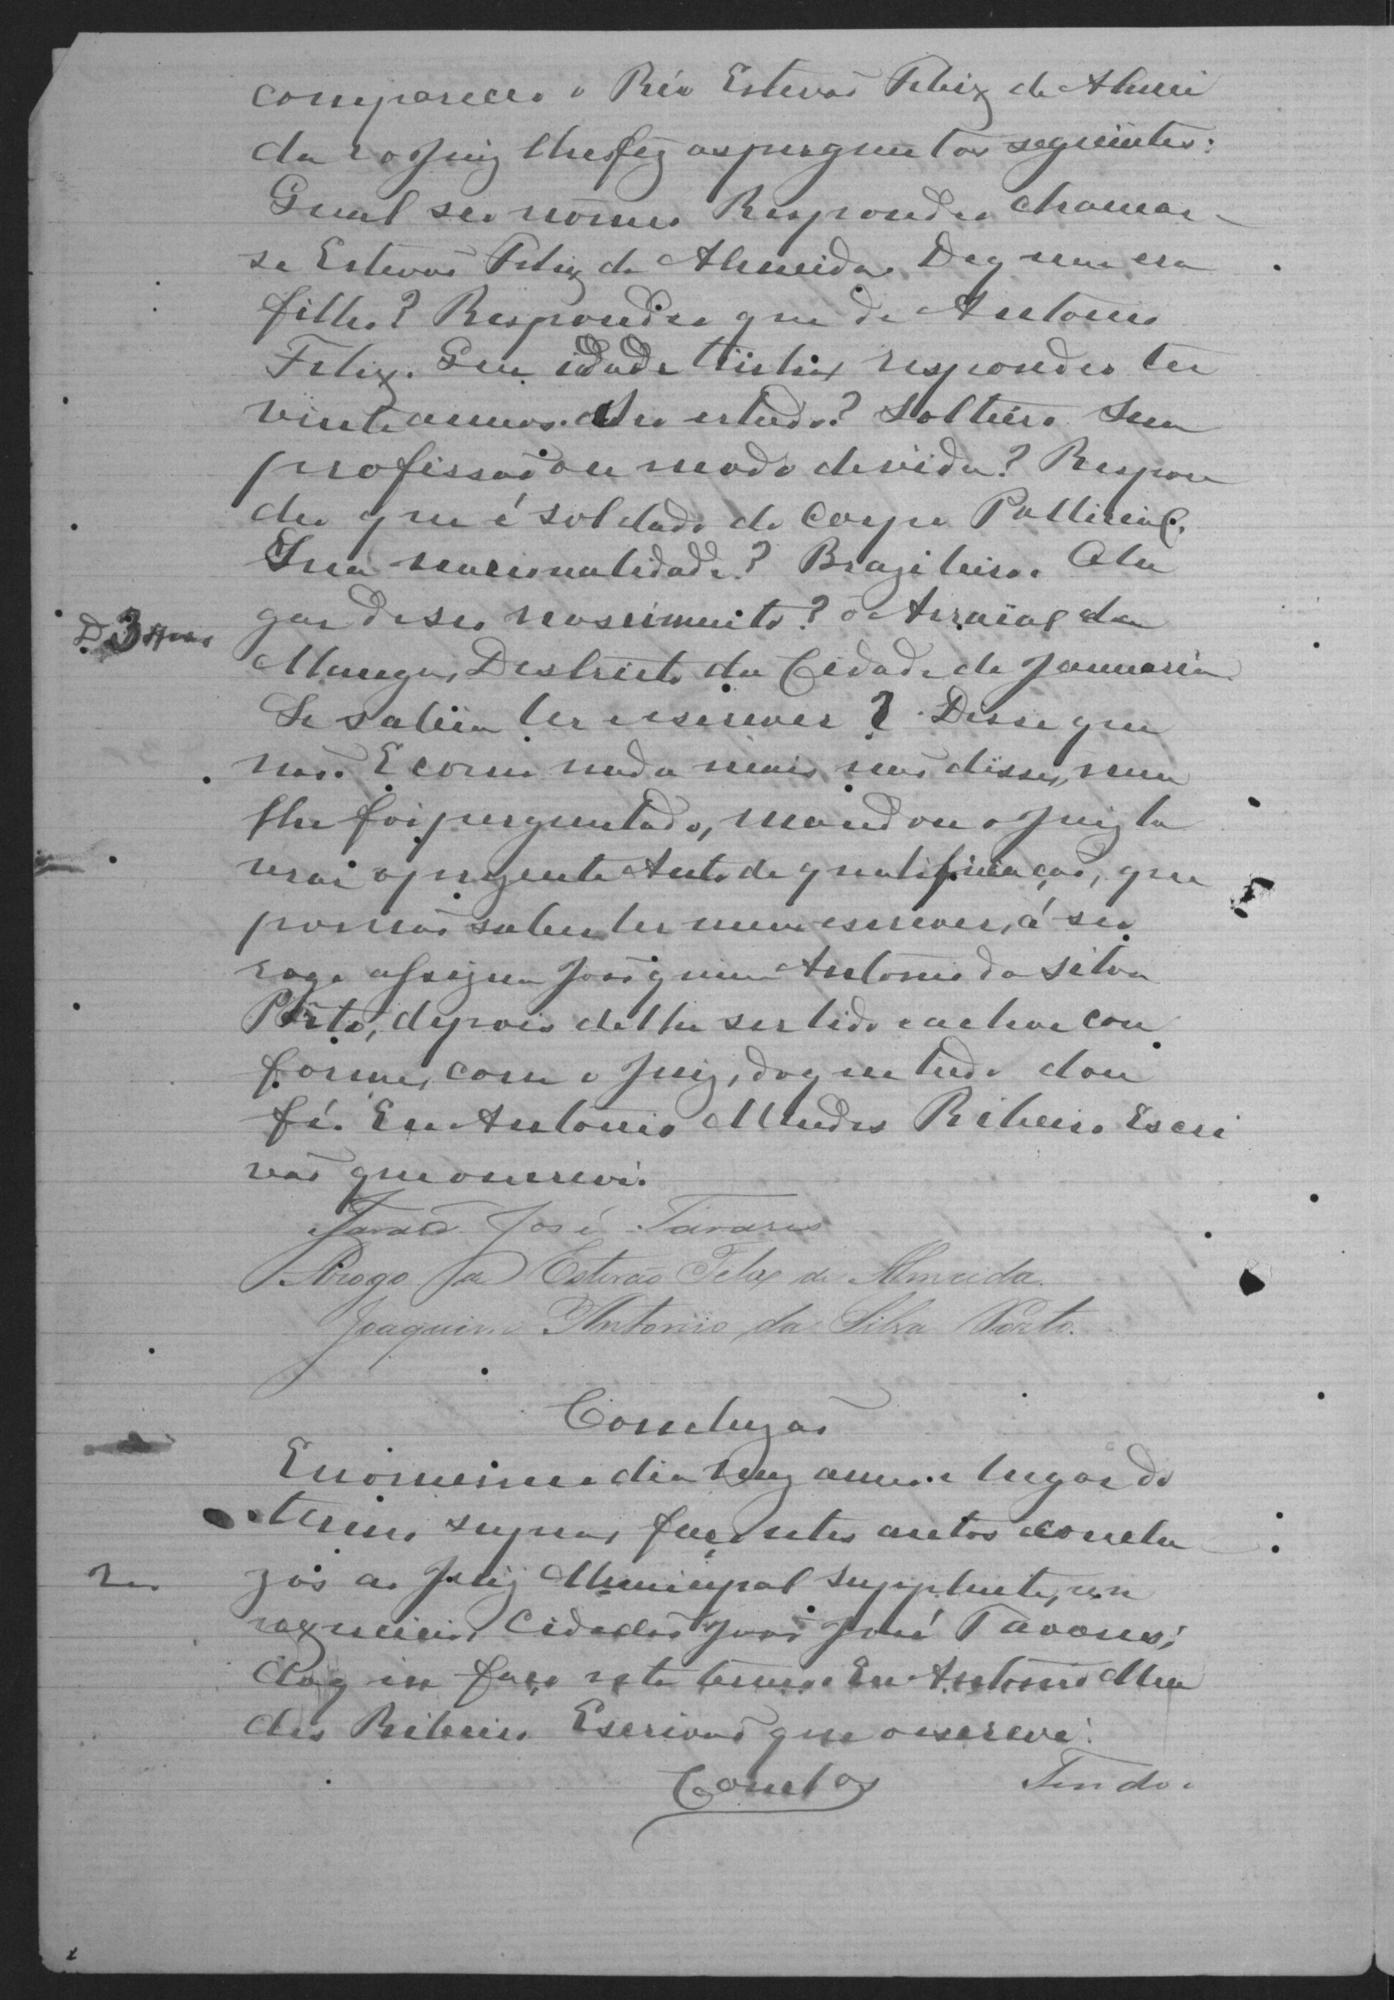 compareceo o Réo Estevaõ Feliz de Almei
da e o Juiz lhe fez as perguntas seguintes:
Qual seo nome? Respondeo chamar-
se Estevaõ Feliz de Almeida. De quem era
filho? Respondeo que de Antonio
Feliz. Que idade tinha? respondeo ter
vinte annos. Seo estado? Solteiro. Sua
profissaõ ou modo de vida? Respon
deo que é soldado do Corpo Pollicial.
Sua nacionalidade? Brazileiro. O lu
gar de seo nascimento? o Arraial da
Manga, Destricto da Cidade de Januaria.
Se sabia ler e escrever? Disse que
naõ. E como nada mais naõ disse, nem
lhe foi perguntado, mandou o Juiz la
vrar o prezente Auto de qualificaçaõ, que
por naõ saber ler nem escrever, á seo
rogo assigna Joaõquim Antonio da Silva
Porto, depois de lhe ser lido e achar con
forme, com o Juiz, do que tudo dou
fé. Eu Antonio Mendes Ribeiro Escri
vaõ que o escrevi.
José Tavares
Arogo de Estevão Felix de Almeida.
Joaquim Antonio da Silva Porto.
Concluzaõ
E no mesmo dia mez anno e lugar do
termo supra, faço estes autos conclu
zos ao Juiz Municipal Supplente, em
exercicio Cidadaõ Joaõ José Tavares;
do q in faço este termo. Eu Antonio Men
des Ribeiro Escrivaõ que o escrevi.
Conclos
Tendo